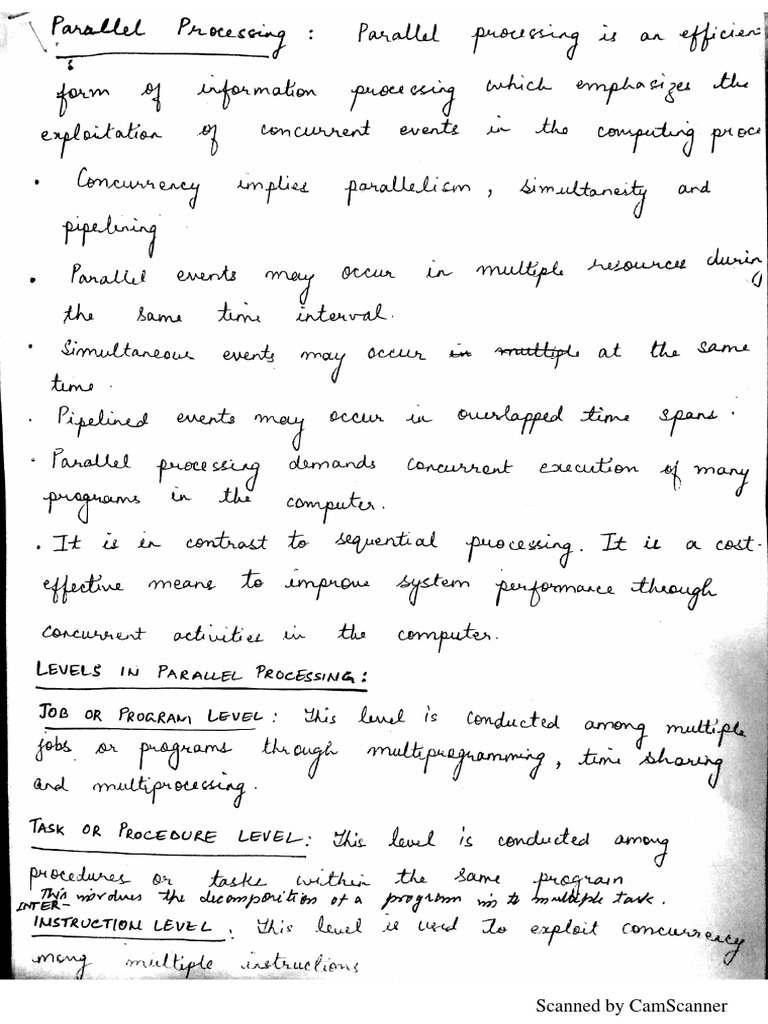 Parallel Processing : Parallel processing is an efficien
form of information processing which emphasizes the
exploitation of concurrent events in the computing proce
• Concurrency implies parallelism, simultaneity and
pipelining
• Parallel events may occur in multiple resources during
the same time interval.
• Simultaneous events may occur in multiple at the same
time.
• Pipelined events may occur in overlapped time spans.
• Parallel processing demands concurrent execution of many
programs in the computer.
• It is in contrast to sequential processing. It is a cost-
effective means to improve system performance through
concurrent activities in the computer.
LEVELS IN PARALLEL PROCESSING:
JOB OR PROGRAM LEVEL: This level is conducted among multiple
jobs or programs through multiprogramming, time sharing
and multiprocessing.
TASK OR PROCEDURE LEVEL: This level is conducted among
procedures or tasks within the same program
This involves the decomposition of a program in to multiple task.
INTER-
INSTRUCTION LEVEL. This level is used To exploit concurrency
mong multiple instructions
Scanned by CamScanner